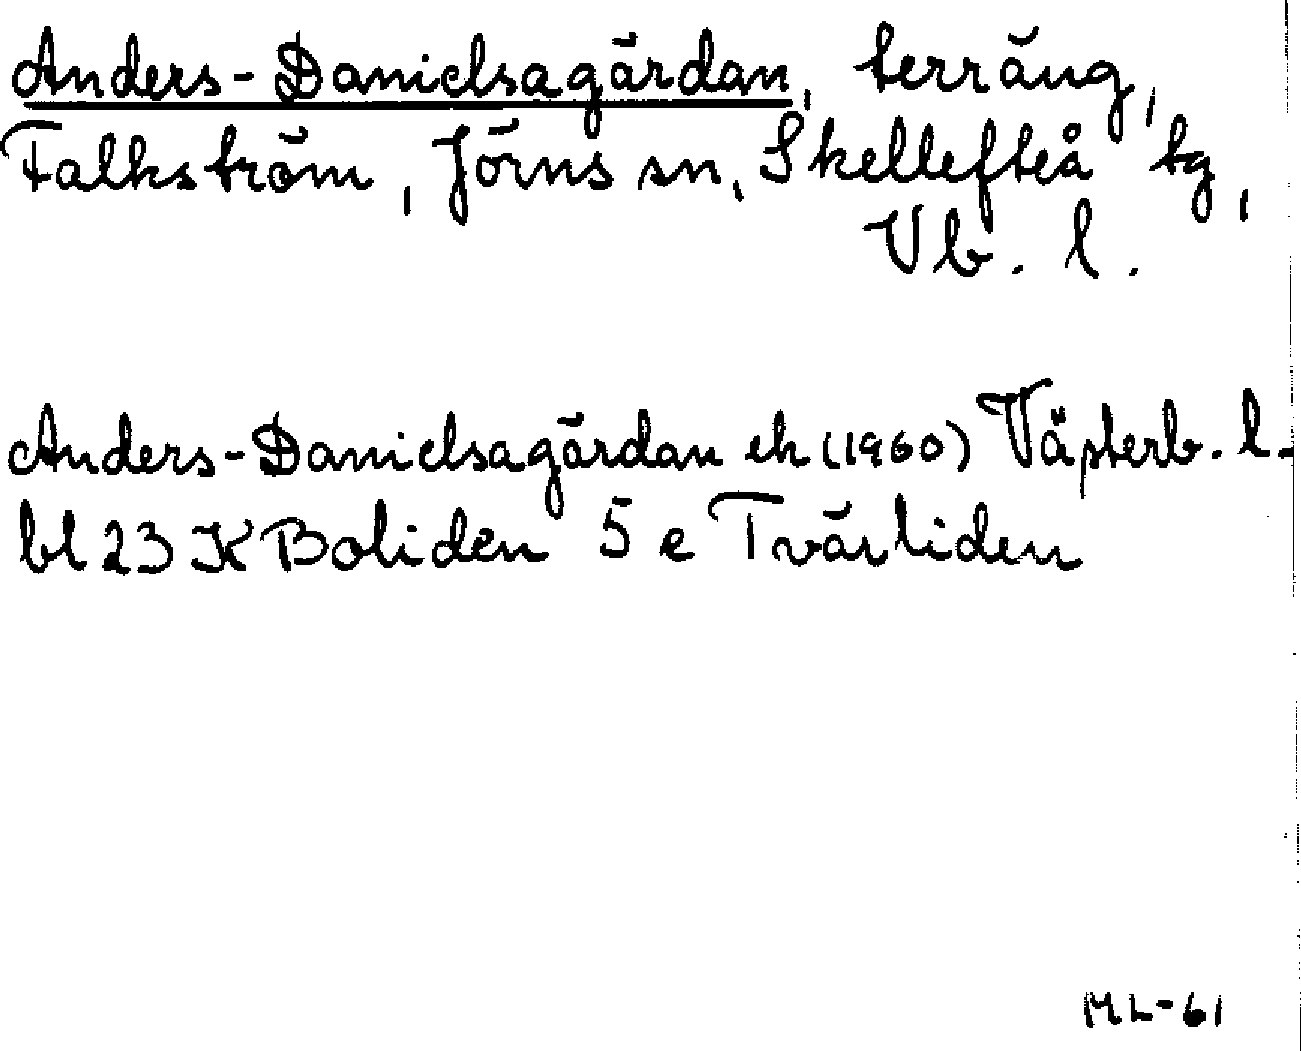 Anders-Danielsagärdan, terräng,
Falkström, Jörns sn, Skellefteå tg,
Vb. l.
Anders-Danielsagärdan ek (1960) Västerb. l.
bl 23 K Boliden 5 e Tvärliden
ML-61